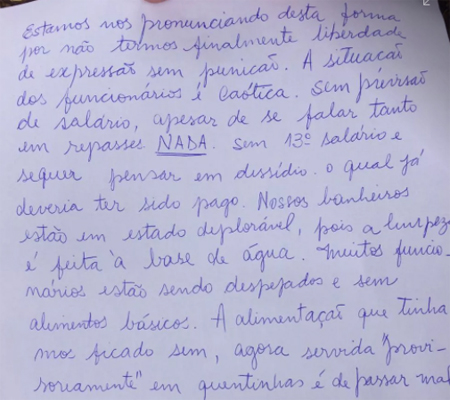 Estamos nos pronunciando desta forma
por não termos finalmente liberdade
de expressão sem punição. A situação
dos funcionários é caótica. Sem previsão
de salário, apesar de se falar tanto
em repasses NADA. Sem 13º salário e
sequer pensar em dissídio. o qual já
deveria ter sido pago. Nossos banheiros
estão em estado deplorável, pois a limpeza
é feita à base de água. Muitos funcio-
nários estão sendo despejados e sem
alimentos básicos. A alimentação que tinha
mos ficado sem, agora servida "provi-
soriamente" em quentinhas é de passar mal